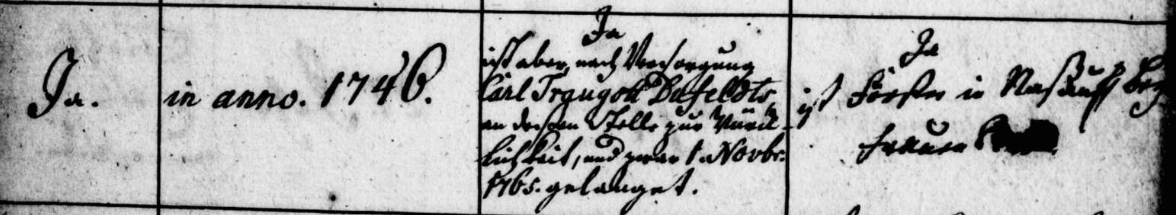 Ja.
in anno. 1746.
Ja
ist aber, nach Versorgung
Carl Traugott Dufeldts
an dessen Stelle zur Würck-
lichkeit, und zwar 1. Novbr:
1765. gelanget.
Ja
ist Förster in
Frauen